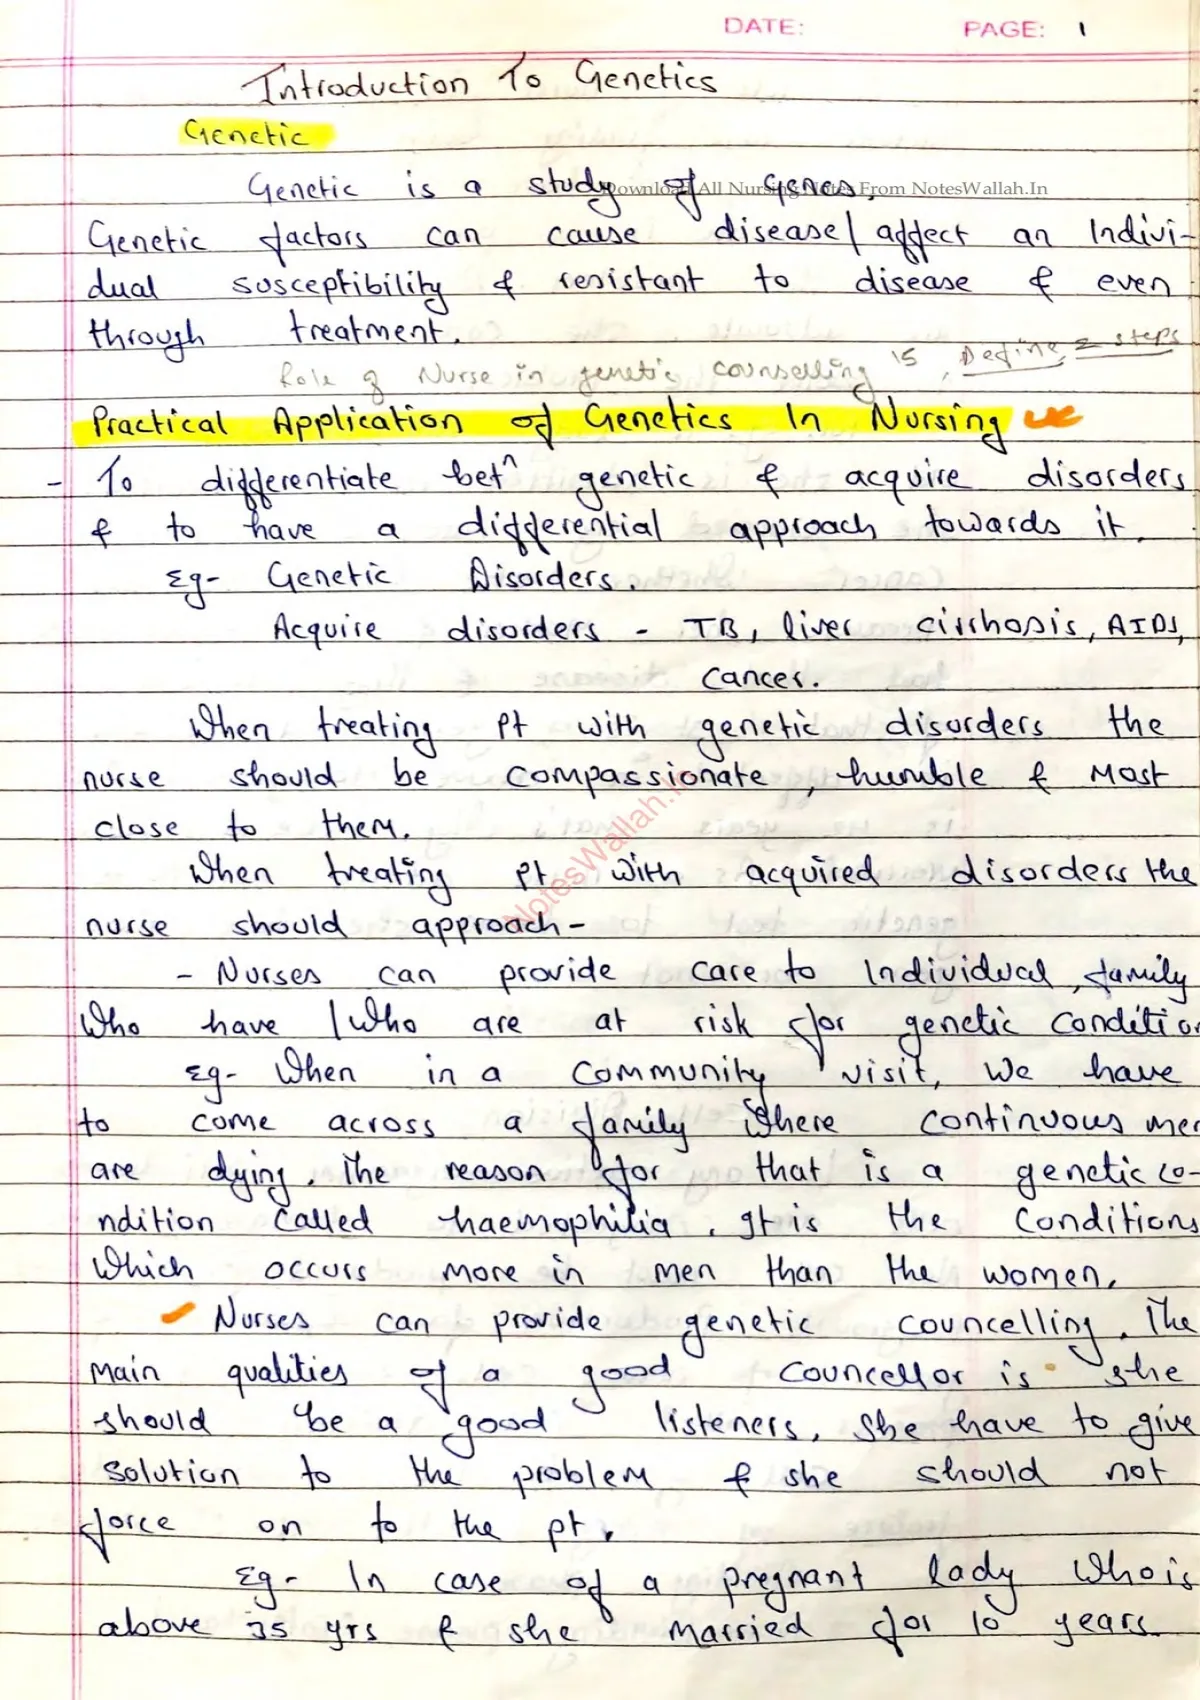 DATE: PAGE: 1
Introduction To Genetics
Genetic
Genetic is a study of genes.
Download All Nursing Notes From NotesWallah.In
Genetic factors can cause disease/ affect an Indivi-
dual susceptibility & resistant to disease & even
through treatment.
Role of Nurse in genetic counselling 15, Define, 2 steps
Practical Application of Genetics In Nursing
- To differentiate betn genetic & acquire disorders
& to have a differential approach towards it.
Eg- Genetic Disorders.
Acquire disorders - TB, liver cirrhosis, AIDS,
cancer.
When treating pt with genetic disorders the
nurse should be compassionate, humble & Most
close to them.
When treating pt with acquired disorders the
nurse should approach-
NotesWallah.In
- Nurses can provide care to Individual, family
Who have / Who are at risk for genetic conditio
Eg- When in a community visit, We have
to come across a family Where continuous men
are dying. The reason for that is a genetic co-
ndition called haemophilia. It is the conditions
Which occurs more in men than the women.
Nurses can provide genetic councelling. The
Main qualities of a good councellor is she
should be a good listeners, She have to give
solution to the problem & she should not
force on to the pt.
Eg- In case of a pregnant lady Who is
above 35 yrs & she married for 10 years.